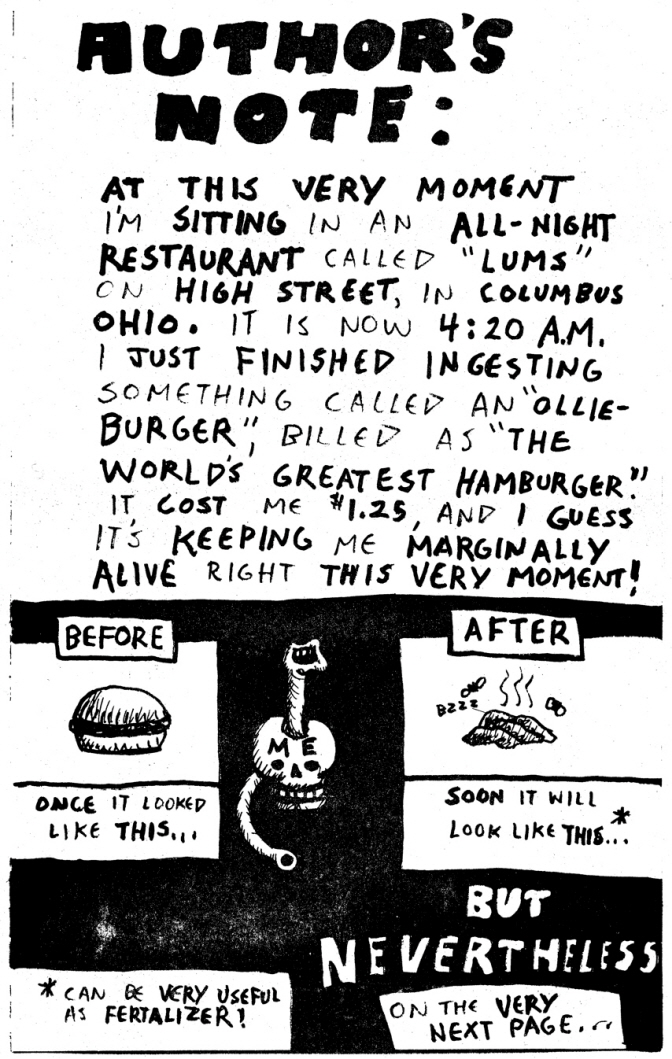 AUTHOR'S
NOTE:
AT THIS VERY MOMENT
I'M SITTING IN AN ALL-NIGHT
RESTAURANT CALLED "LUMS"
ON HIGH STREET, IN COLUMBUS
OHIO. IT IS NOW 4:20 A.M.
I JUST FINISHED INGESTING
SOMETHING CALLED AN "OLLIE-
BURGER", BILLED AS "THE
WORLD'S GREATEST HAMBURGER."
IT COST ME $1.25, AND I GUESS
IT'S KEEPING ME MARGINALLY
ALIVE RIGHT THIS VERY MOMENT!
BEFORE
ONCE IT LOOKED
LIKE THIS...
ME
AFTER
BZZZ
SOON IT WILL
LOOK LIKE THIS...*
BUT
NEVERTHELESS
* CAN BE VERY USEFUL
AS FERTALIZER!
ON THE VERY
NEXT PAGE...